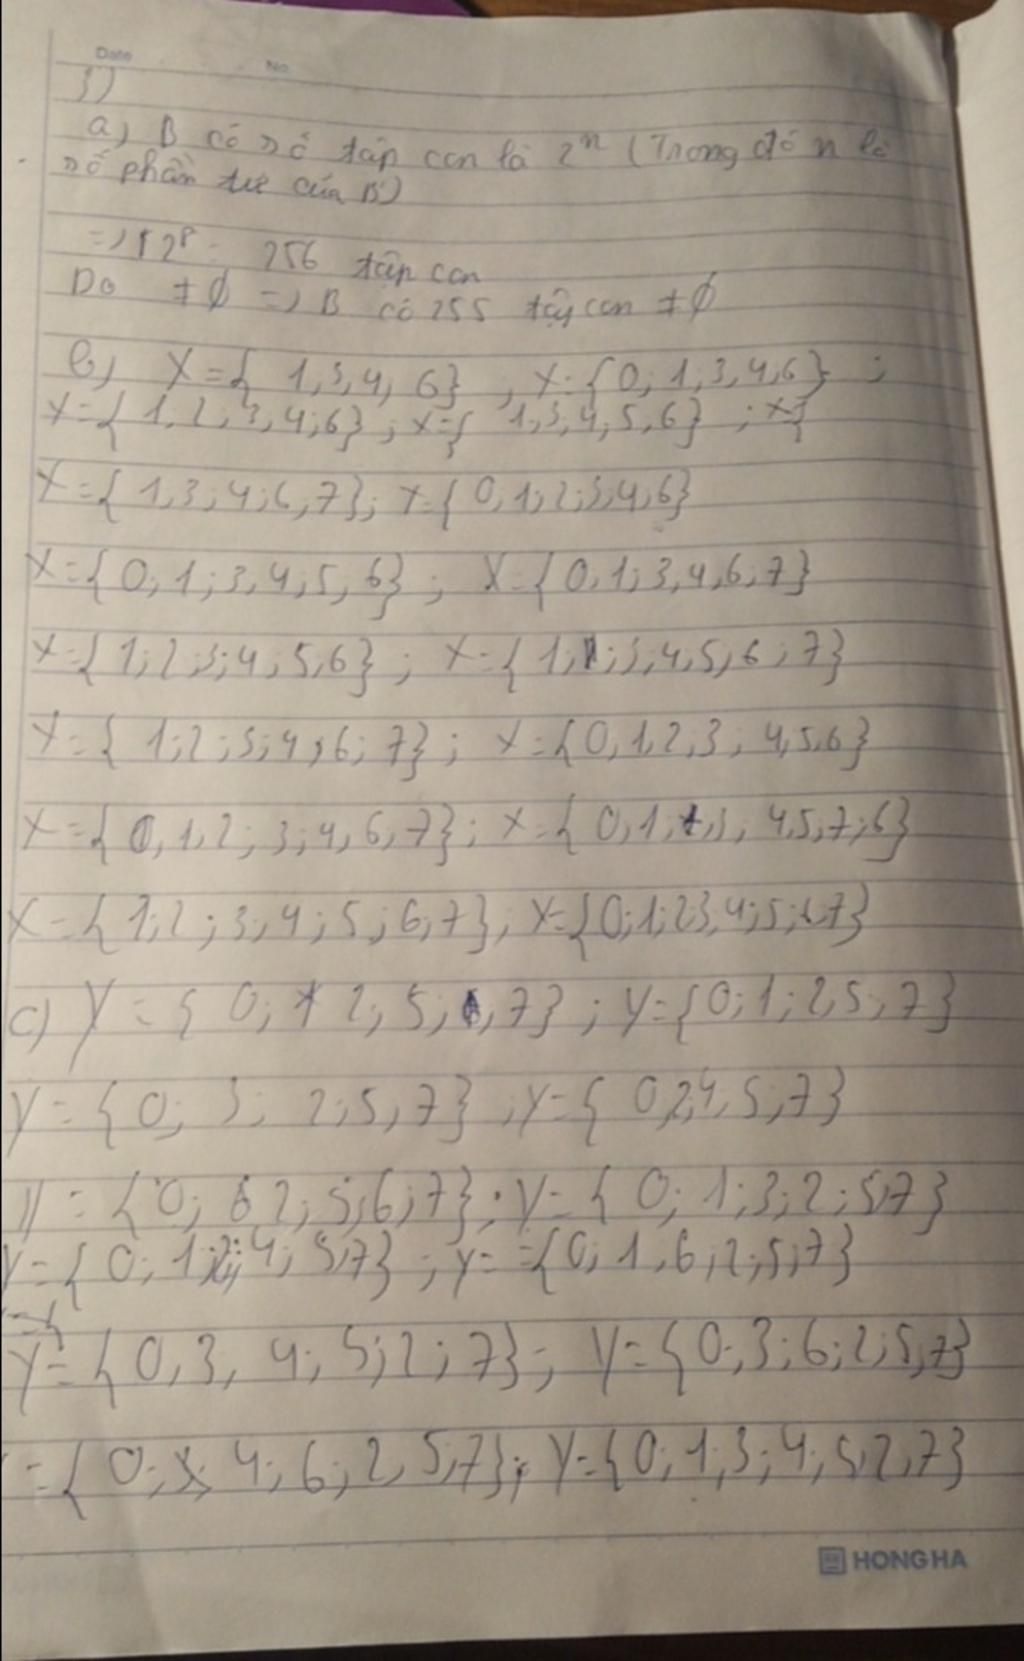 Date No
1)
a) B có số tập con là 2ⁿ (Trong đó n là
số phần tử của B)
=> 2⁸ = 256 tập con
Do ≠ ∅ => B có 255 tập con ≠ ∅
b) X = { 1,3,4, 6} , X = {0; 1,3,4,6} ;
X = { 1, 2; 3,4;6} ; X = { 1;3,4,5,6} ; X {
X = { 1,3;4;6,7}; X = { 0,1;2;3;4;6}
X = {0; 1;3,4,5,6} ; X = {0,1;3,4,6,7}
X = { 1;2;3;4,5,6} ; X = { 1;3,4,5,6;7}
X = { 1;2;3;4,6;7} ; X = {0,1,2,3; 4,5,6}
X = {0,1,2; 3;4,6,7}; X = { 0,1,3, 4,5,7;6}
X = { 1;2;3,4;5;6;7}, X = {0;1;2,3,4;5;6,7}
c) Y = { 0; 2; 5; 7} ; Y = {0;1;2,5;7}
Y = {0; 3; 2;5,7} , Y = { 0,2,4,5;7}
Y = {0; 2;5;6;7} ; Y = { 0; 1;3;2;5,7}
Y = {0; 1;2; 4; 5,7} ; Y = = {0; 1,6;2;5;7}
Y = {0,3, 4; 5;2;7}; Y = {0;3;6;2;5,7}
= {0; 4; 6; 2, 5;7}; Y = {0;1,3;4;5,2,7}
HONG HA